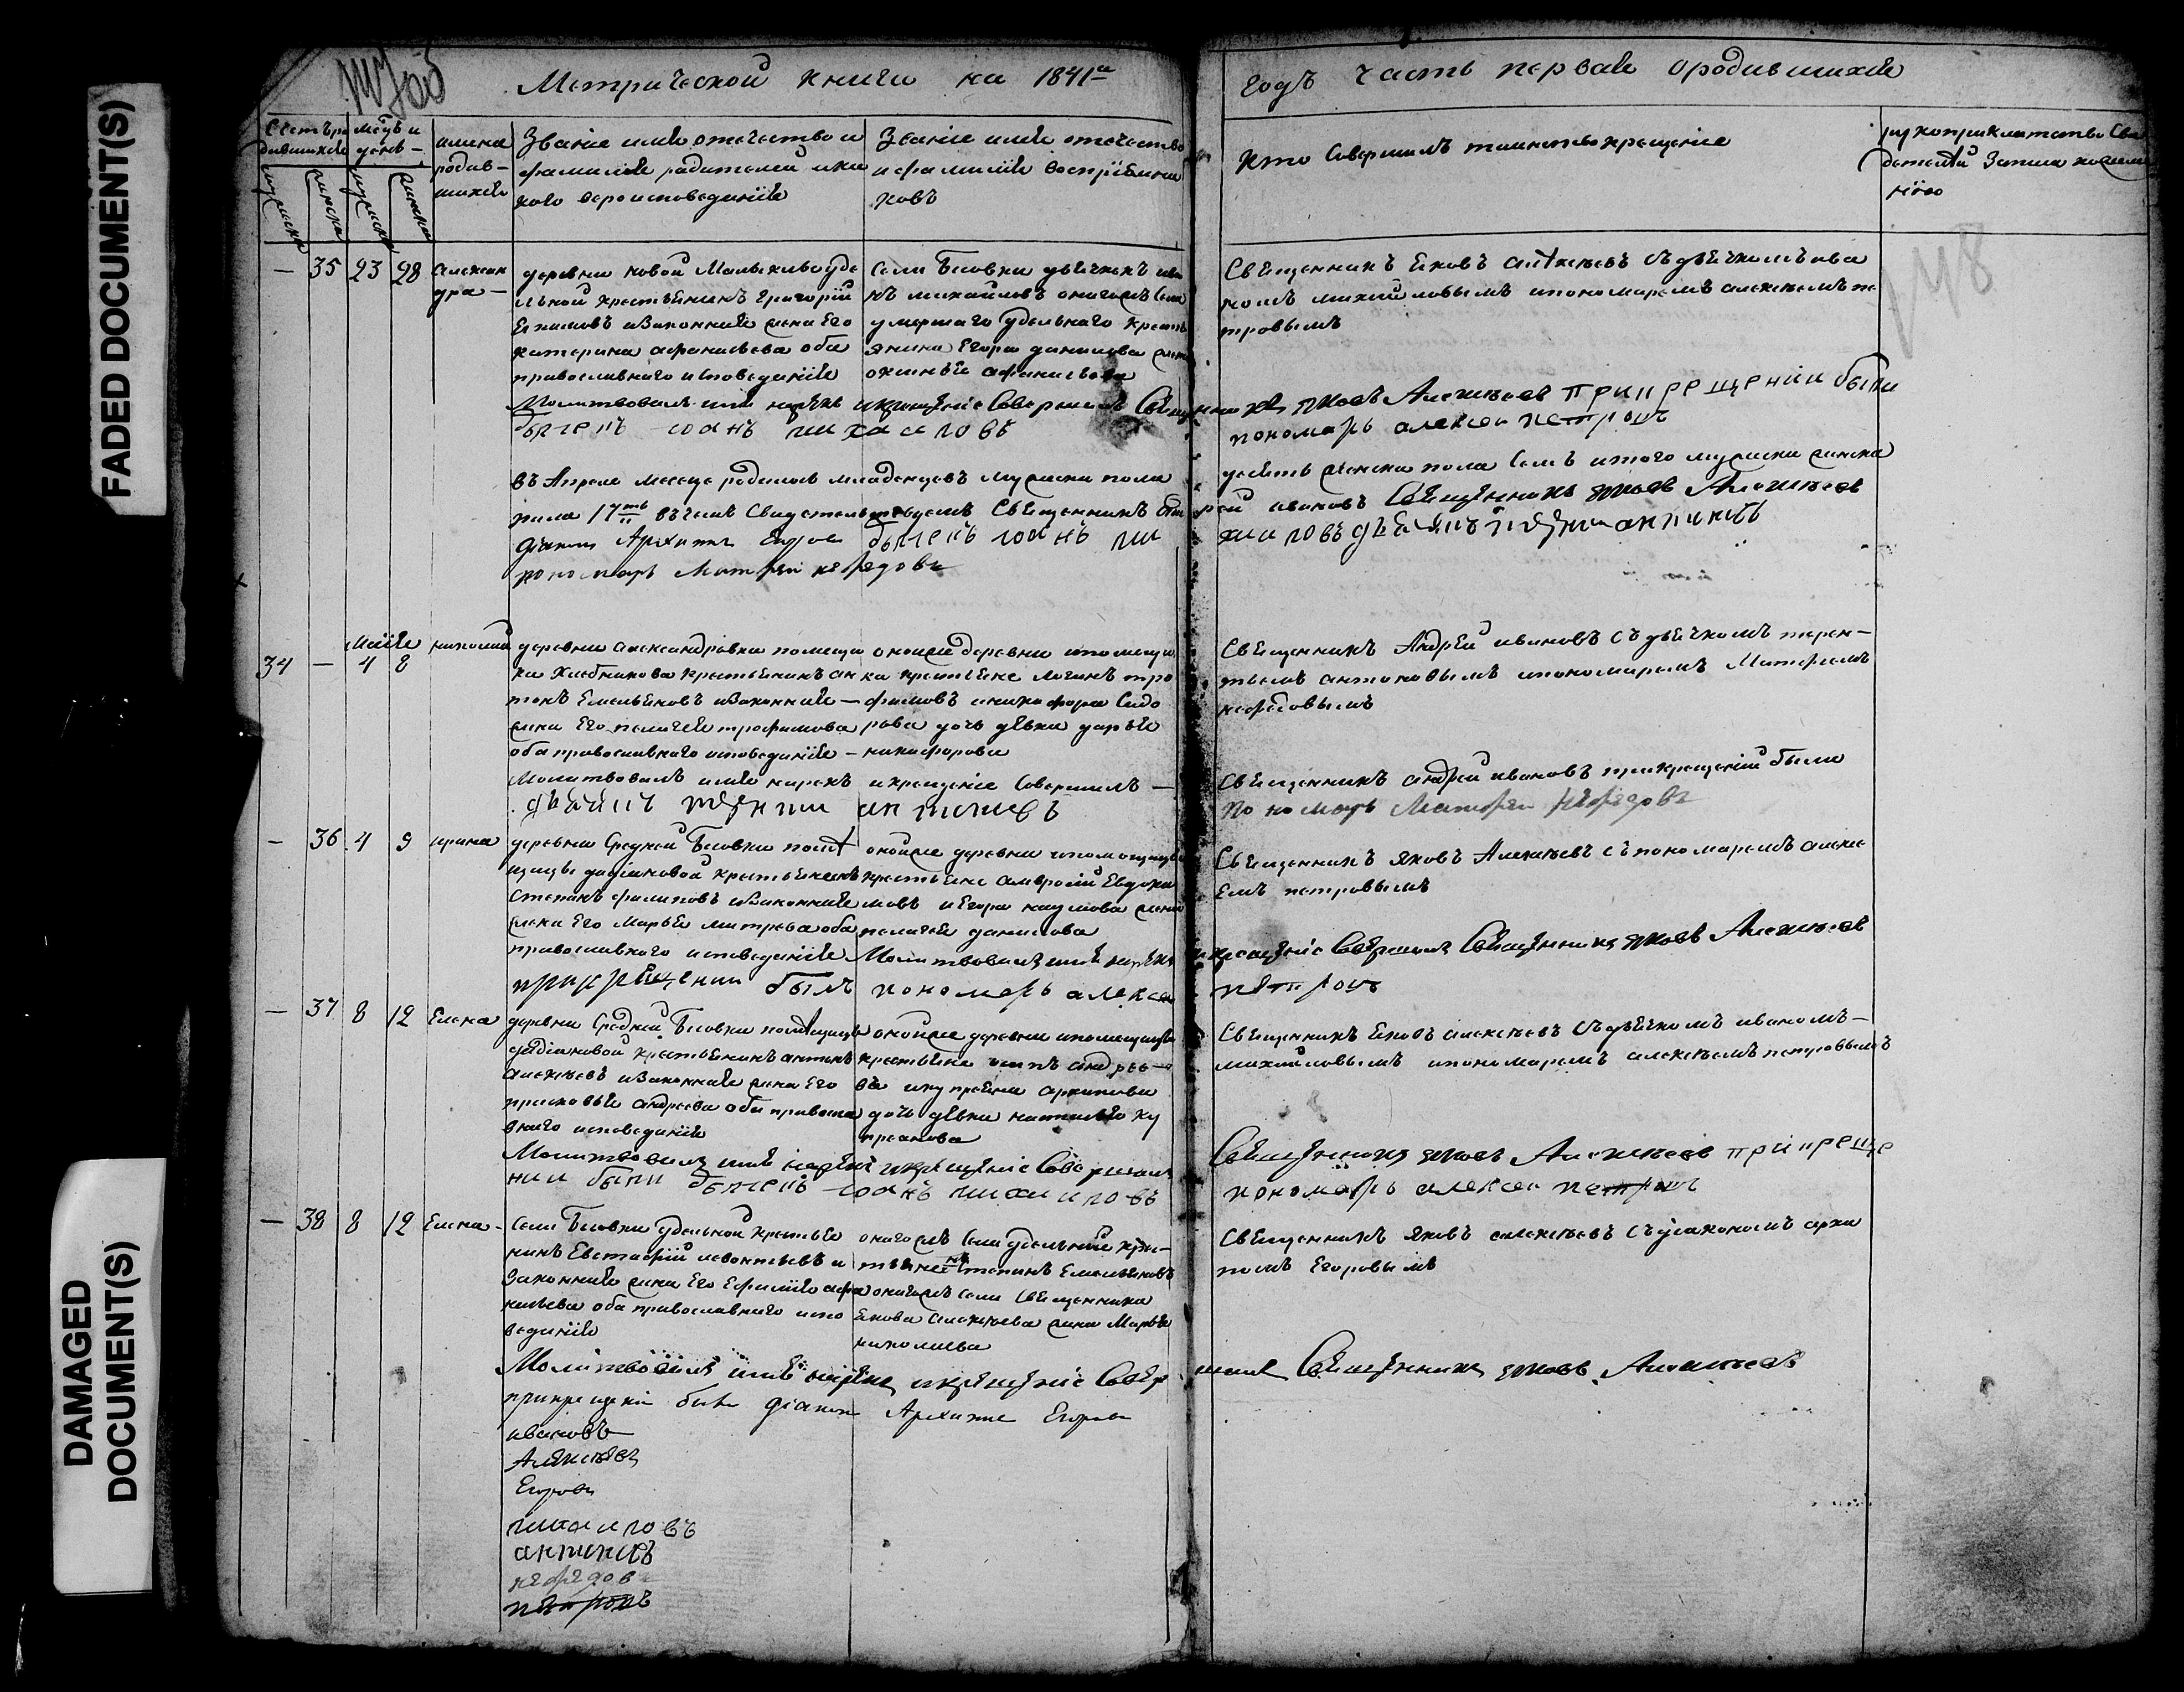 FADED DOCUMENT(S)
DAMAGED DOCUMENT(S)
Метрической книги на 1841й годъ часть первая о родившихся
Счетъ родившихся
мѣсяцъ и день
имена родившихся
Званіе имя отечество и фамилія родителей и какого вероисповеданія
Званіе имя отечество и фамилія воспріемниковъ
Кто совершилъ таинство крещеніе
рукоприкладство свидетелей записи по желанію
148
— 35 23 28 Александра —
деревни Новой Малыклы уде
льной крестьянинъ Григорій
и законная жена Его
катерина афанасьева оба
православнаго исповеданія
Села Бѣсовки дьячекъ ива
нъ михайловъ онагожъ села
умершаго удельнаго кресть
янина Егора данилова жена
аксинья афанасьева
Священникъ Яковъ алексѣевъ съ дьячкомъ ива
номъ михайловымъ и пономаремъ алексѣемъ пе
тровымъ
Молитвовалъ имя нарекъ и крещеніе Совершилъ Священникъ Яковъ Алексѣевъ при крещеніи были
дьячекъ иоанъ михаиловъ пономарь алексеи петровъ
въ Апреле месеце родилось младенцевъ мужска пола десять женска пола семъ итого мужска женска
пола 17ть въ чемъ Свидетельствуемъ Священникъ Андрей ивановъ Священникъ Яковъ Алексѣевъ
діаконъ Архипъ Егоровъ дьячекъ иоанъ михаиловъ дьячекъ терентий антоновъ
пономарь Матфей нефедовъ
34 — Маія 4 8 николай
деревни александровки помещи
ка Хлебникова крестьянинъ ан
тонъ Емельяновъ и законная —
жена Его пелагея трофимова
оба православнаго исповеданія —
оной же деревни и помещи
ка крестьяне логинъ тро
фимовъ и никифора Сидо
рова дочь дѣвка дарья
никифорова
Священникъ Андрей ивановъ съ дьячкомъ терен—
тьемъ антоновымъ и пономаремъ Матфеемъ
нефедовымъ
Молитвовалъ имя нарекъ и крещеніе Совершилъ — Священникъ андрей ивановъ при крещеніи были
дьячекъ терентии антоновъ пономарь Матфеи нефедовъ
— 36 4 9 ирина
деревни Средней Бесовки поме
щицы дадіановой крестьянинъ
Степанъ филиповъ и законная
жена Его Марья митрева оба
православнаго исповеданія
оной же деревни и помещицы
крестьяне амвросій Евдоки
мовъ и Егора наумова жена
пелагея данилова
Священникъ Яковъ Алексѣевъ съ пономаремъ алексе
емъ петровымъ
Молитвовалъ имя нарекъ и крещеніе Совершилъ Священникъ Яковъ Алексѣевъ
при крещении былъ пономарь алексеи петровъ
— 37 8 12 Елена
деревни Средней Бесовки помещицы
дадіановой крестьянинъ антонъ
алексѣевъ и законная жена Его
прасковья андреева оба правосла
внаго исповеданія
оной же деревни и помещицы
крестьяне осипъ андрее—
въ и купреяна архипова
дочь дѣвка наталья ку
преянова
Священникъ Яковъ алексѣевъ съ дьячкомъ иваномъ —
михайловымъ и пономаремъ алексѣемъ петровымъ
Молитвовалъ имя нарекъ и крещеніе Совершилъ Священникъ Яковъ Алексѣевъ при креще
нии были дьячекъ иоанъ михаиловъ пономарь алексеи петровъ
— 38 8 12 Елена —
Села Бесовки удельной крестья
нинъ Евстафій леонтьевъ и
законная жена Его Ефимія афа
насьева оба православнаго испо
веданія
онагожъ села удельные крес—
тьянинъ степанъ Емельяновъ
онагожъ села Священника
Якова Алексѣева жена Марья
николаева
Священникъ Яковъ алексѣевъ съ діакономъ архи
помъ Егоровымъ
Молитвовалъ имя нарекъ и крещеніе Совершилъ Священникъ Яковъ Алексѣевъ
при крещеніи былъ діаконъ Архипъ Егоровъ
ивановъ
Алексѣевъ
Егоровъ
михаиловъ
антоновъ
нефедовъ
петровъ